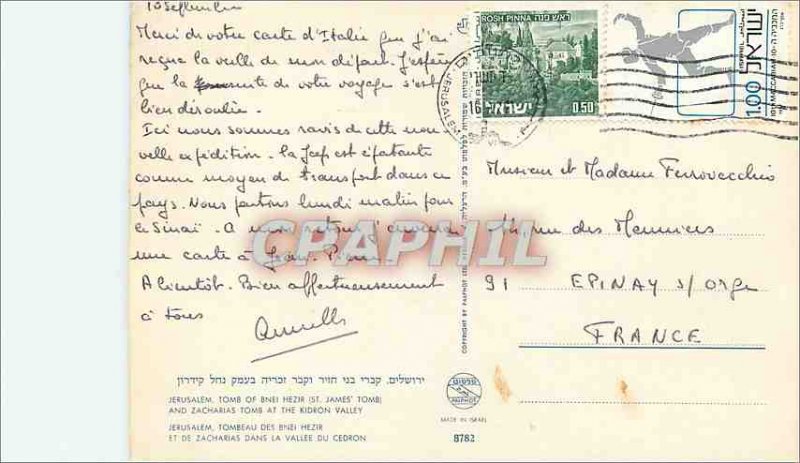 10 Septembre
Merci de votre carte d'Italie que j'ai
reçue la veille de mon départ. J'espère
que la suite de votre voyage s'est
bien déroulée.
Ici nous sommes ravis de cette nou
velle expédition. la Jeep est épatante
comme moyen de transport dans ce
pays. Nous partons lundi matin pour
le Sinaï. A mon retour j'enverrai
une carte à Jean-Pierre.
A bientôt. Bien affectueusement
à tous
ירושלים, קברי בני חזיר וקבר זכריה בעמק נחל קידרון
JERUSALEM, TOMB OF BNEI HEZIR (ST. JAMES' TOMB)
AND ZACHARIAS TOMB AT THE KIDRON VALLEY
JERUSALEM, TOMBEAU DES BNEI HEZIR
ET DE ZACHARIAS DANS LA VALLEE DU CEDRON
COPYRIGHT BY PALPHOT
פלפוט
PALPHOT
MADE IN ISRAEL
8782
ROSH PINNA ראש פנה
ישראל 0.50
JERUSALEM
16
ישראל 1.00
Monsieur et Madame Ferrovecchio
rue des Meuniers
91 EPINAY s/ Orge
FRANCE
CPAPHIL